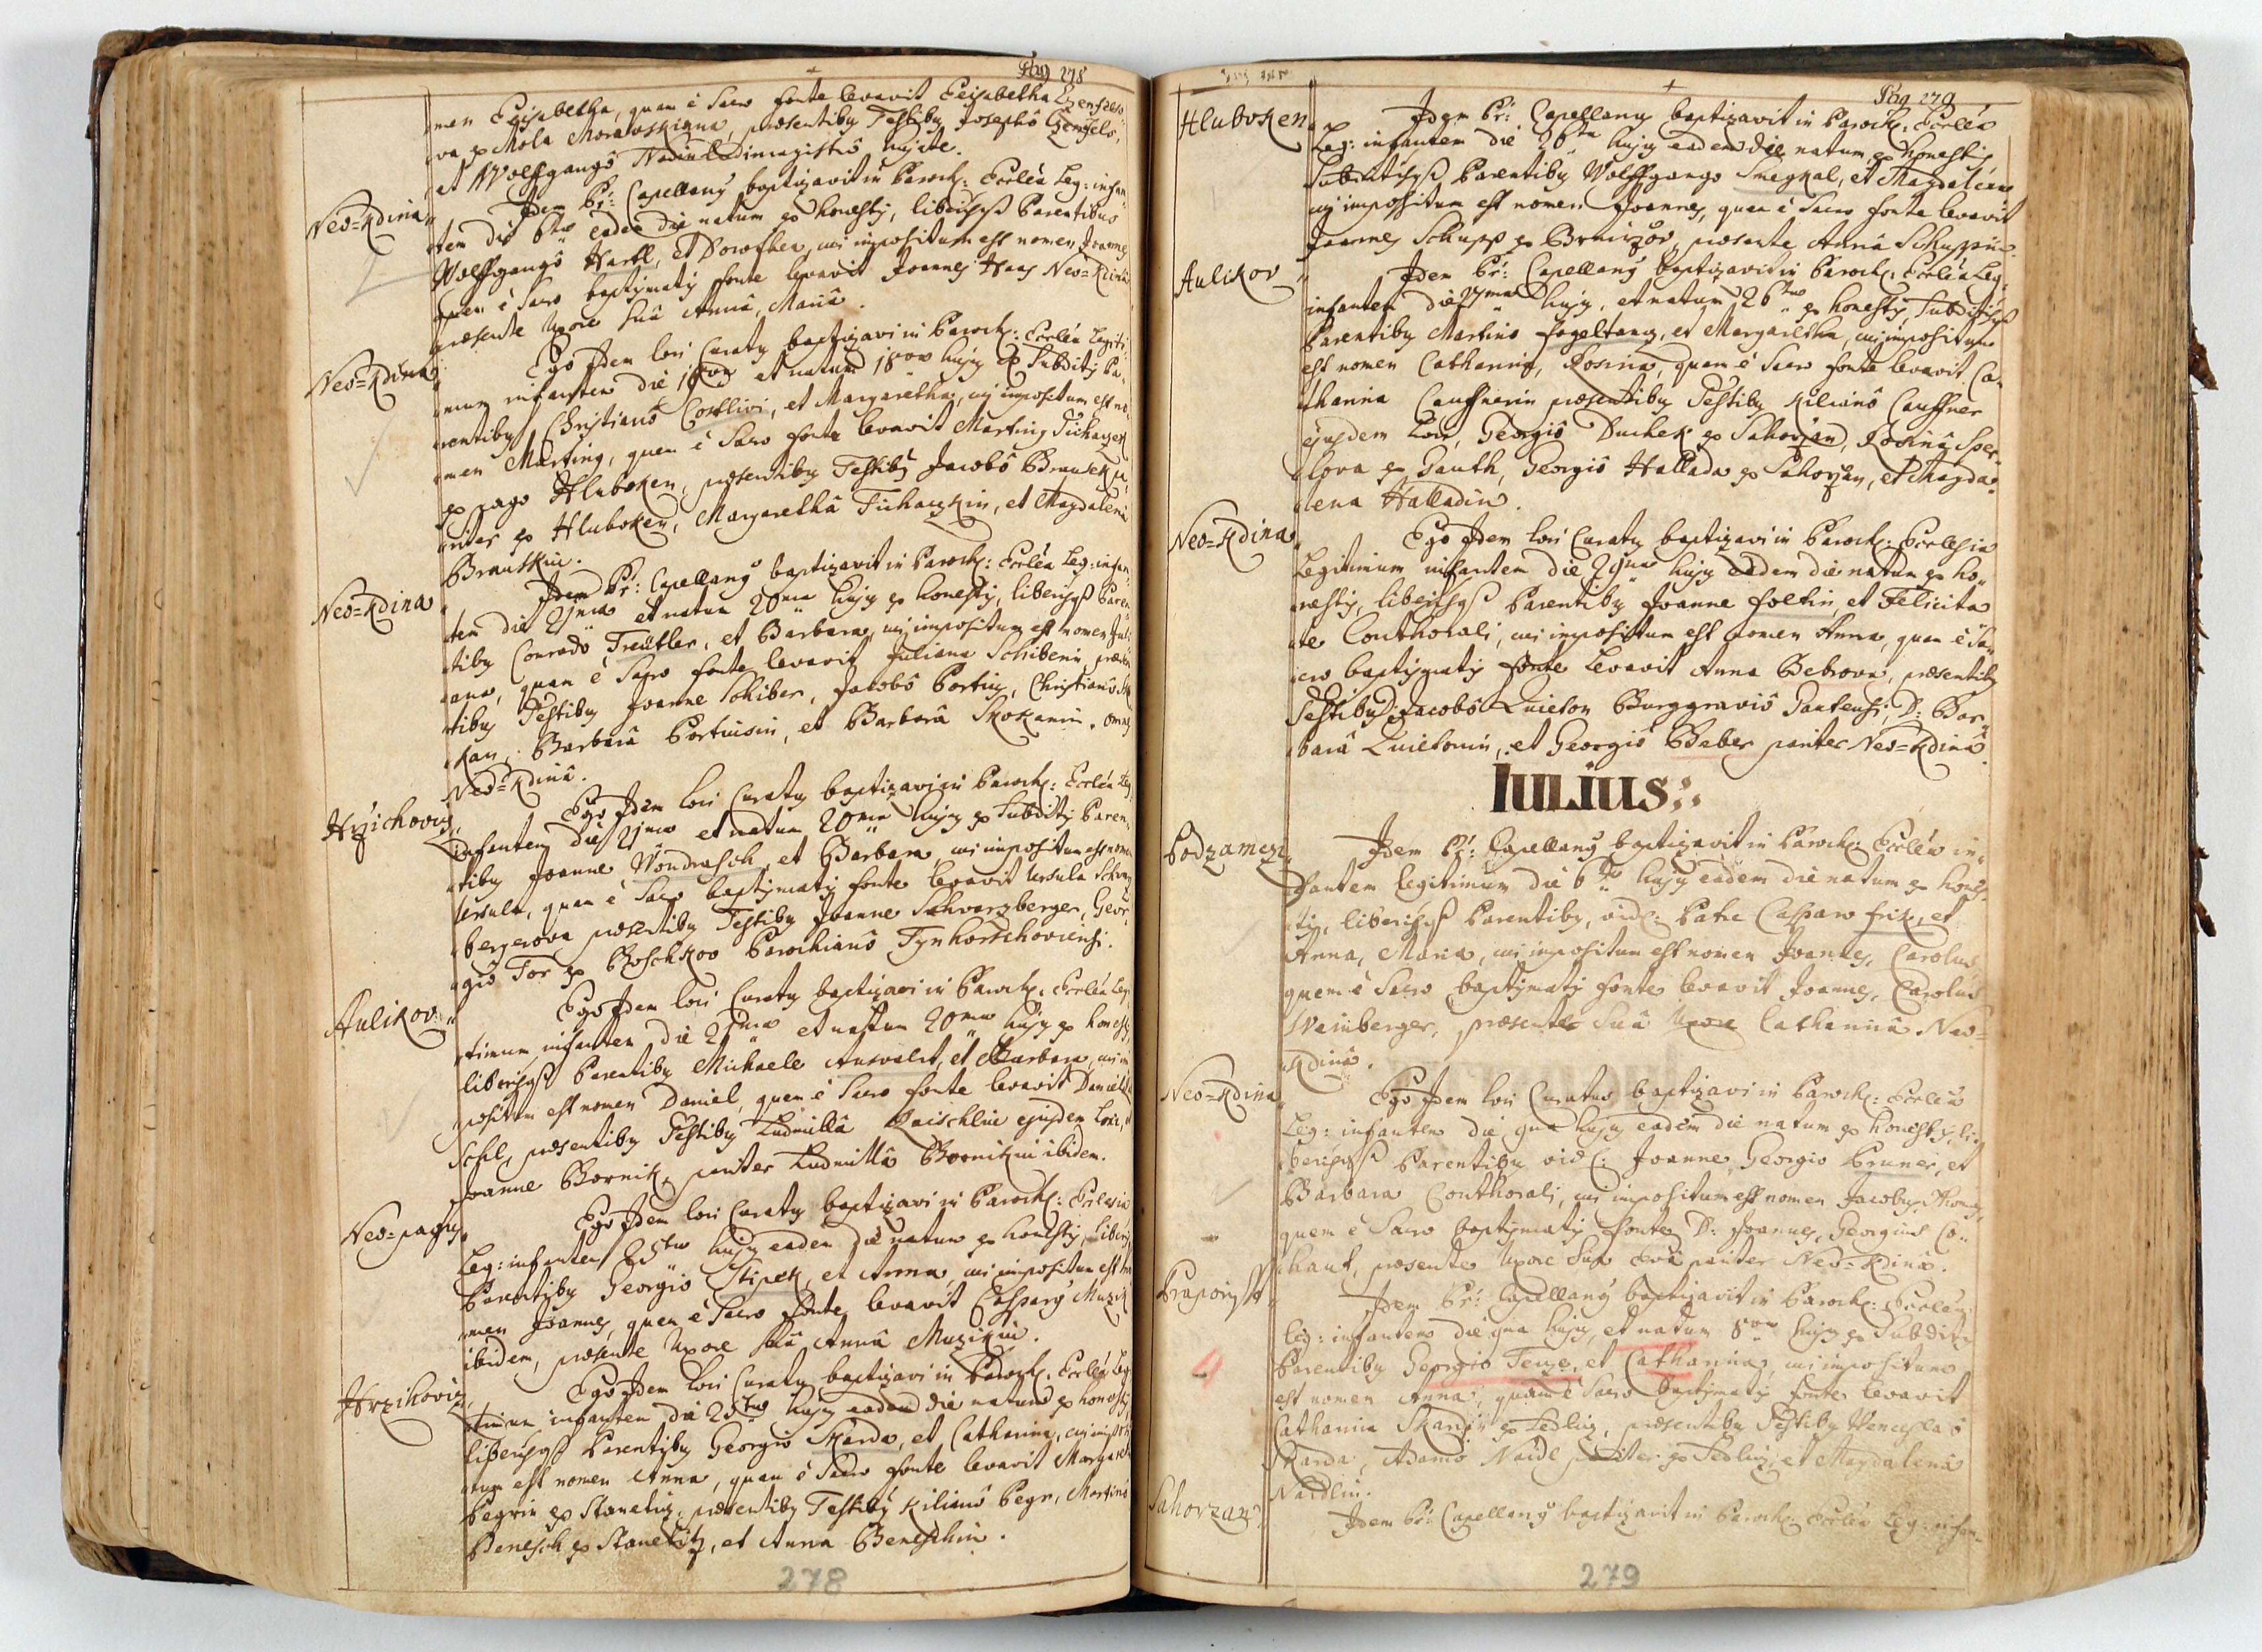 Pag 278
men Elisabetha, quam è Sacro fonte levavit Elisabetha
va ex Mola Morawskiana, praesentibus Testibus Josephô
et Wolffgangô Ludimagistrô
Neo=Kdina
Idem Pr: Capellanus baptizavit in Paroch: Ecclia Leg: infan
tem die 6ta eadem die natum ex honestis, liberisqs Parentibus
Wolffgangô Hartl, et Dorothea, cui impositum est nomen Joannes
quem è Sacro baptismatis fonte levavit Joannes Haas Neo=Kdina
praesente Uxore suâ Annâ, Mariâ.
Neo=Kdina
Ego Idem loci Curatus baptizavi in Paroch: Ecclia Legiti
mum infantem die et natum 18va hujus ex Subditis Pa
rentibus Christianô Costlivi, et Margaretha, cui impositum est no
men Martinus, quem è Sacro fonte levavit Martinus Tichaczek
ex pago Hluboken, praesentibus Testibus Jacobô Brausek
riter ex Hluboken, Margarethâ Tichaczkin, et Magdalena
Brauskin.
Neo=Kdina
Idem Pr: Capellanus baptizavit in Paroch: Ecclia Leg: infan
tem die 21ma et natum 20ma hujus ex honestis, liberisqs Paren
tibus Conrado Treütler, et Barbara, cui impositum est nomen Juli
ana, quam è Sacro fonte levavit Juliana Schiberin, praesen
tibus Testibus Joanne Schiber, Jacobô Portius, Christianô
kan, Barbarâ Portiusin, et Barbarâ Skokanin. omnes
Neo=Kdina.
Hrzichoviz
Ego Idem loci Curatus baptizavi in Paroch: Ecclia Leg
infantem die 21ma et natum 20ma hujus ex Subditis Paren
tibus Joanne Wondrasch, et Barbara, cui impositum est nomen
Ursula, quam è Sacro baptismatis fonte levavit Ursula Schwarz
bergerova praesentibus Testibus Joanne Schwarzberger, Geor
giô Tor ex Boschkov Parochianô Tynhorschoviensi.
Aulikov
Ego Idem loci Curatus baptizavi in Paroch: Ecclia Leg
timum infantem die 21ma et natum 20ma hujus ex honestis
liberisqs Parentibus Michaele Answaldt, et Barbara, cui im
positum est nomen Daniel, quem è Sacro fonte levavit Daniel
Schl, praesentibus Testibus Ludmillâ Raischlin ejusdem Loci,
Joanne Bornik, pariter Ludmillâ Bornikin ibidem.
Neo=pagus
Ego Idem loci Curatus baptizavi in Paroch: Ecclesia
Leg: infantem 25ta hujus eadem die natum ex honestis, liberis
Parentibus Georgio Stipek, et Anna, cui impositum est no
men Joannes, quem è Sacro fonte levavit Casparus Muzik
ibidem, praesente Uxore suâ Annâ Muzikin.
Hrzihoviz
Ego Idem loci Curatus baptizavi in Paroch: Ecclia Leg
timum infantem die 25ta hujus eadem die natum ex honestis
liberisqs Parentibus Georgio Skarda, et Catharina, cui imposi
tum est nomen Anna, quam è Sacro fonte levavit Margaretha
Pegrin ex Stanetiz, praesentibus Testibus Kilianô Pegr, Martinô
Benesch ex Stanetiz, et Anna Beneschin.
278
Pag 279
Hluboken
Idem Pr: Capellanus baptizavit in Paroch: Ecclia
Leg: infantem die 26ta hujus eadem die natum ex honestis
Subditisqs Parentibus Wolffgango Smegkal, et Magdalena
cui impositum est nomen Joannes, quem è Sacro fonte levavit
Joannes Schupp ex Brnirzov, praesente Annâ Schuppin.
Aulikov
Idem Pr: Capellanus baptizavit in Paroch: Ecclia Leg:
infantem die 27ma hujus, et natum 26ta ex honestis Subditisqs
Parentibus Martino Fogeltanz, et Margaretha, cui impositum
est nomen Catharina, Rosina, quam è Sacro fonte levavit Ca
tharina Cauffnerin praesentibus Testibus Kilianô Cauffner
ejusdem Loci, Georgiô Duchek ex Sahorzan, Rosinâ Sper
lova ex Gauth, Georgiô Hallada ex Sahorzan, et Magda
lena Halladin.
Neo=Kdina
Ego Idem loci Curatus baptizavi in Paroch: Ecclesia
Legitimum infantem die 29na hujus eadem die natum ex ho
nestis, liberisqs Parentibus Joanne Foltin, et Felicita
te Conthorali, cui impositum est nomen Anna, quam è Sa
cro baptismatis fonte levavit Anna Bebrova, praesentibus
Testibus Jacobô Quieton Burggraviô Gautensi, D: Bar
barâ Quietonin, et Georgiô Beber pariter Neo=Kdina.
IULIUS:.
Podzamczi
Idem Pr: Capellanus baptizavit in Paroch: Ecclia in
fantem legitimum die 6ta hujus eadem die natum ex hones
tis, liberisqs Parentibus, vidl: Patre Casparo Frik, et
Anna, Maria, cui impositum est nomen Joannes, Carolus
quem è Sacro baptismatis fonte levavit Joannes, Carolus
Weinberger, praesente Suâ Uxore Catharinâ Neo=
Kdina.
Neo=Kdina
Ego Idem loci Curatus baptizavi in Paroch: Ecclia
Leg: infantem die 9na hujus eadem die natum ex honestis, li
berisqs Parentibus vidl: Joanne, Georgio Pruner, et
Barbara Conthorali, cui impositum est nomen Jacobus, Thomas,
quem è Sacro baptismatis fonte D: Joannes, Georgius Co
haut, praesente Uxore Suâ Evâ pariter Neo=Kdina.
Praporisst
Idem Pr: Capellanus baptizavit in Paroch: Ecclia
leg: infantem die 9na hujus, et natum 8va hujus ex Subditis
Parentibus Georgio Tenze, et Catharina, cui impositum
est nomen Anna, quam è Sacro baptismatis fonte levavit
Catharina Skardin ex Sedliz, praesentibus Testibus Wenceslaô
Skarda, Adamô Naidl pariter ex Sedliz, et Magdalena
Naidlin.
Sahorzan
Idem Pr: Capellanus baptizavit in Paroch: Ecclia Leg: infan
279